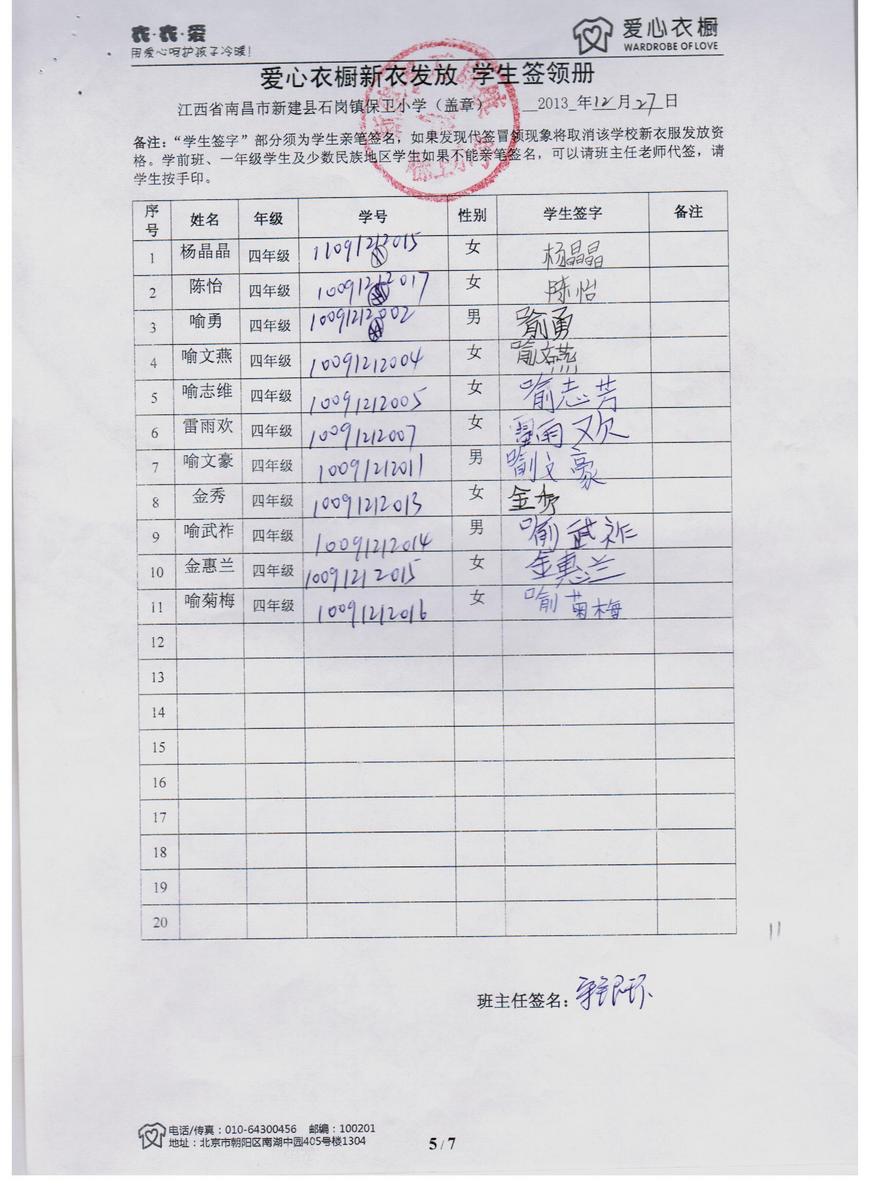 衣·衣·爱
用爱心呵护孩子冷暖!
爱心衣橱
WARDROBE OF LOVE
爱心衣橱新衣发放 学生签领册
江西省南昌市新建县石岗镇保卫小学（盖章） 2013 年12月27日
备注：“学生签字”部分须为学生亲笔签名，如果发现代签冒领现象将取消该学校新衣服发放资
格。学前班、一年级学生及少数民族地区学生如果不能亲笔签名，可以请班主任老师代签，请
学生按手印。
序号 姓名 年级 学号 性别 学生签字 备注
1 杨晶晶 四年级 女 杨晶晶
2 陈怡 四年级 女 陈怡
3 喻勇 四年级 男 喻勇
4 喻文燕 四年级 10091212004 女 喻文燕
5 喻志维 四年级 10091212005 女 喻志芳
6 雷雨欢 四年级 10091212007 女 雷雨欢
7 喻文豪 四年级 10091212011 男 喻文豪
8 金秀 四年级 10091212013 女 金秀
9 喻武祚 四年级 10091212014 男 喻武祚
10 金惠兰 四年级 10091212015 女 金惠兰
11 喻菊梅 四年级 10091212016 女 喻菊梅
12
13
14
15
16
17
18
19
20
11
班主任签名：
电话/传真：010-64300456 邮编：100201
地址：北京市朝阳区南湖中园405号楼1304
5 / 7